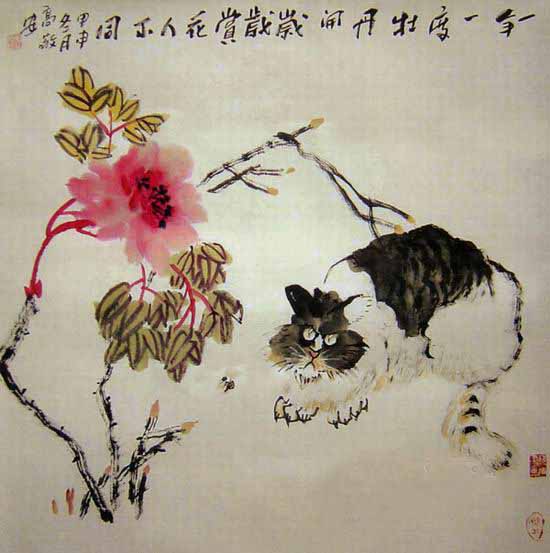 一年一度牡丹開歲歲賞花人不同
甲申
冬月
高敬